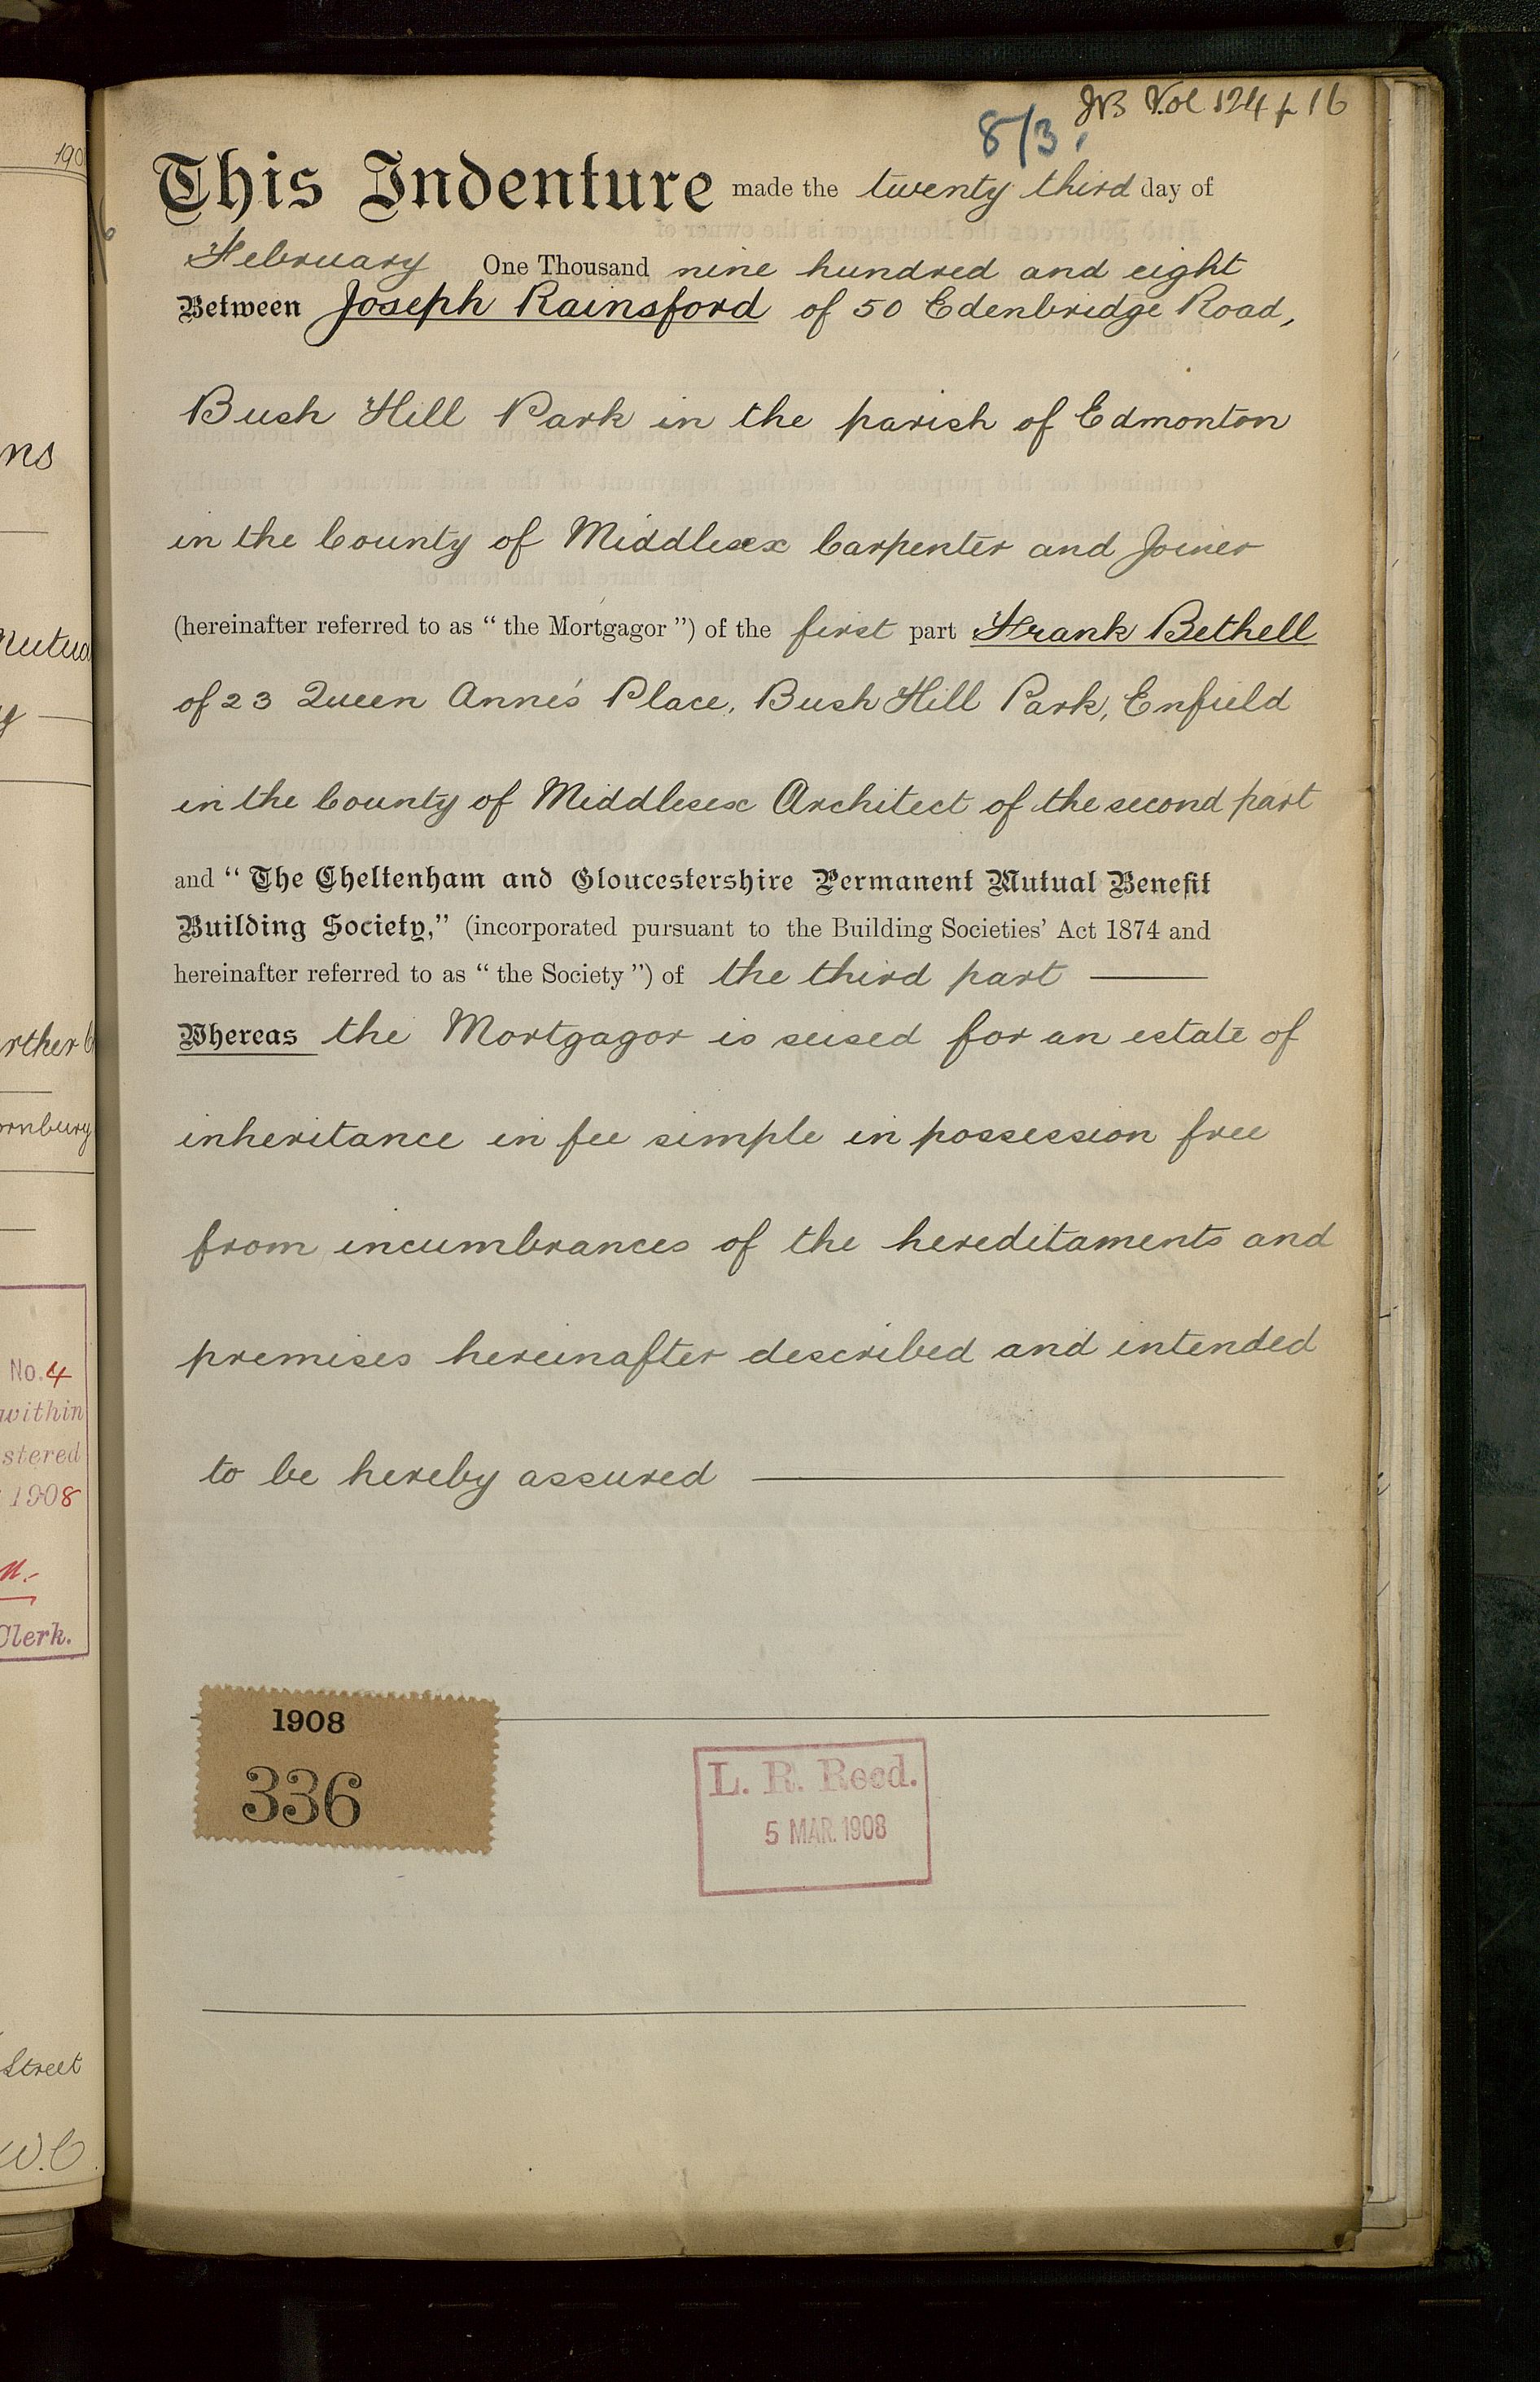 JB Vol 124 p 16
8/3.
This Indenture made the twenty third day of
February One Thousand nine hundred and eight
Between Joseph Rainsford of 50 Edenbridge Road,
Bush Hill Park in the parish of Edmonton
in the County of Middlesex Carpenter and Joiner
(hereinafter referred to as “ the Mortgagor ”) of the first part Frank Bethell
of 23 Queen Anne's Place, Bush Hill Park, Enfield
in the County of Middlesex Architect of the second part
and “ The Cheltenham and Gloucestershire Permanent Mutual Benefit
Building Society,” (incorporated pursuant to the Building Societies’ Act 1874 and
hereinafter referred to as “ the Society ”) of the third part
Whereas the Mortgagor is seised for an estate of
inheritance in fee simple in possession free
from incumbrances of the hereditaments and
premises hereinafter described and intended
to be hereby assured
1908
336
L. R. Recd.
5 MAR. 1908
190
ns
rther
ornbury
No. 4
within
stered
1908
Clerk.
Street
W.C.